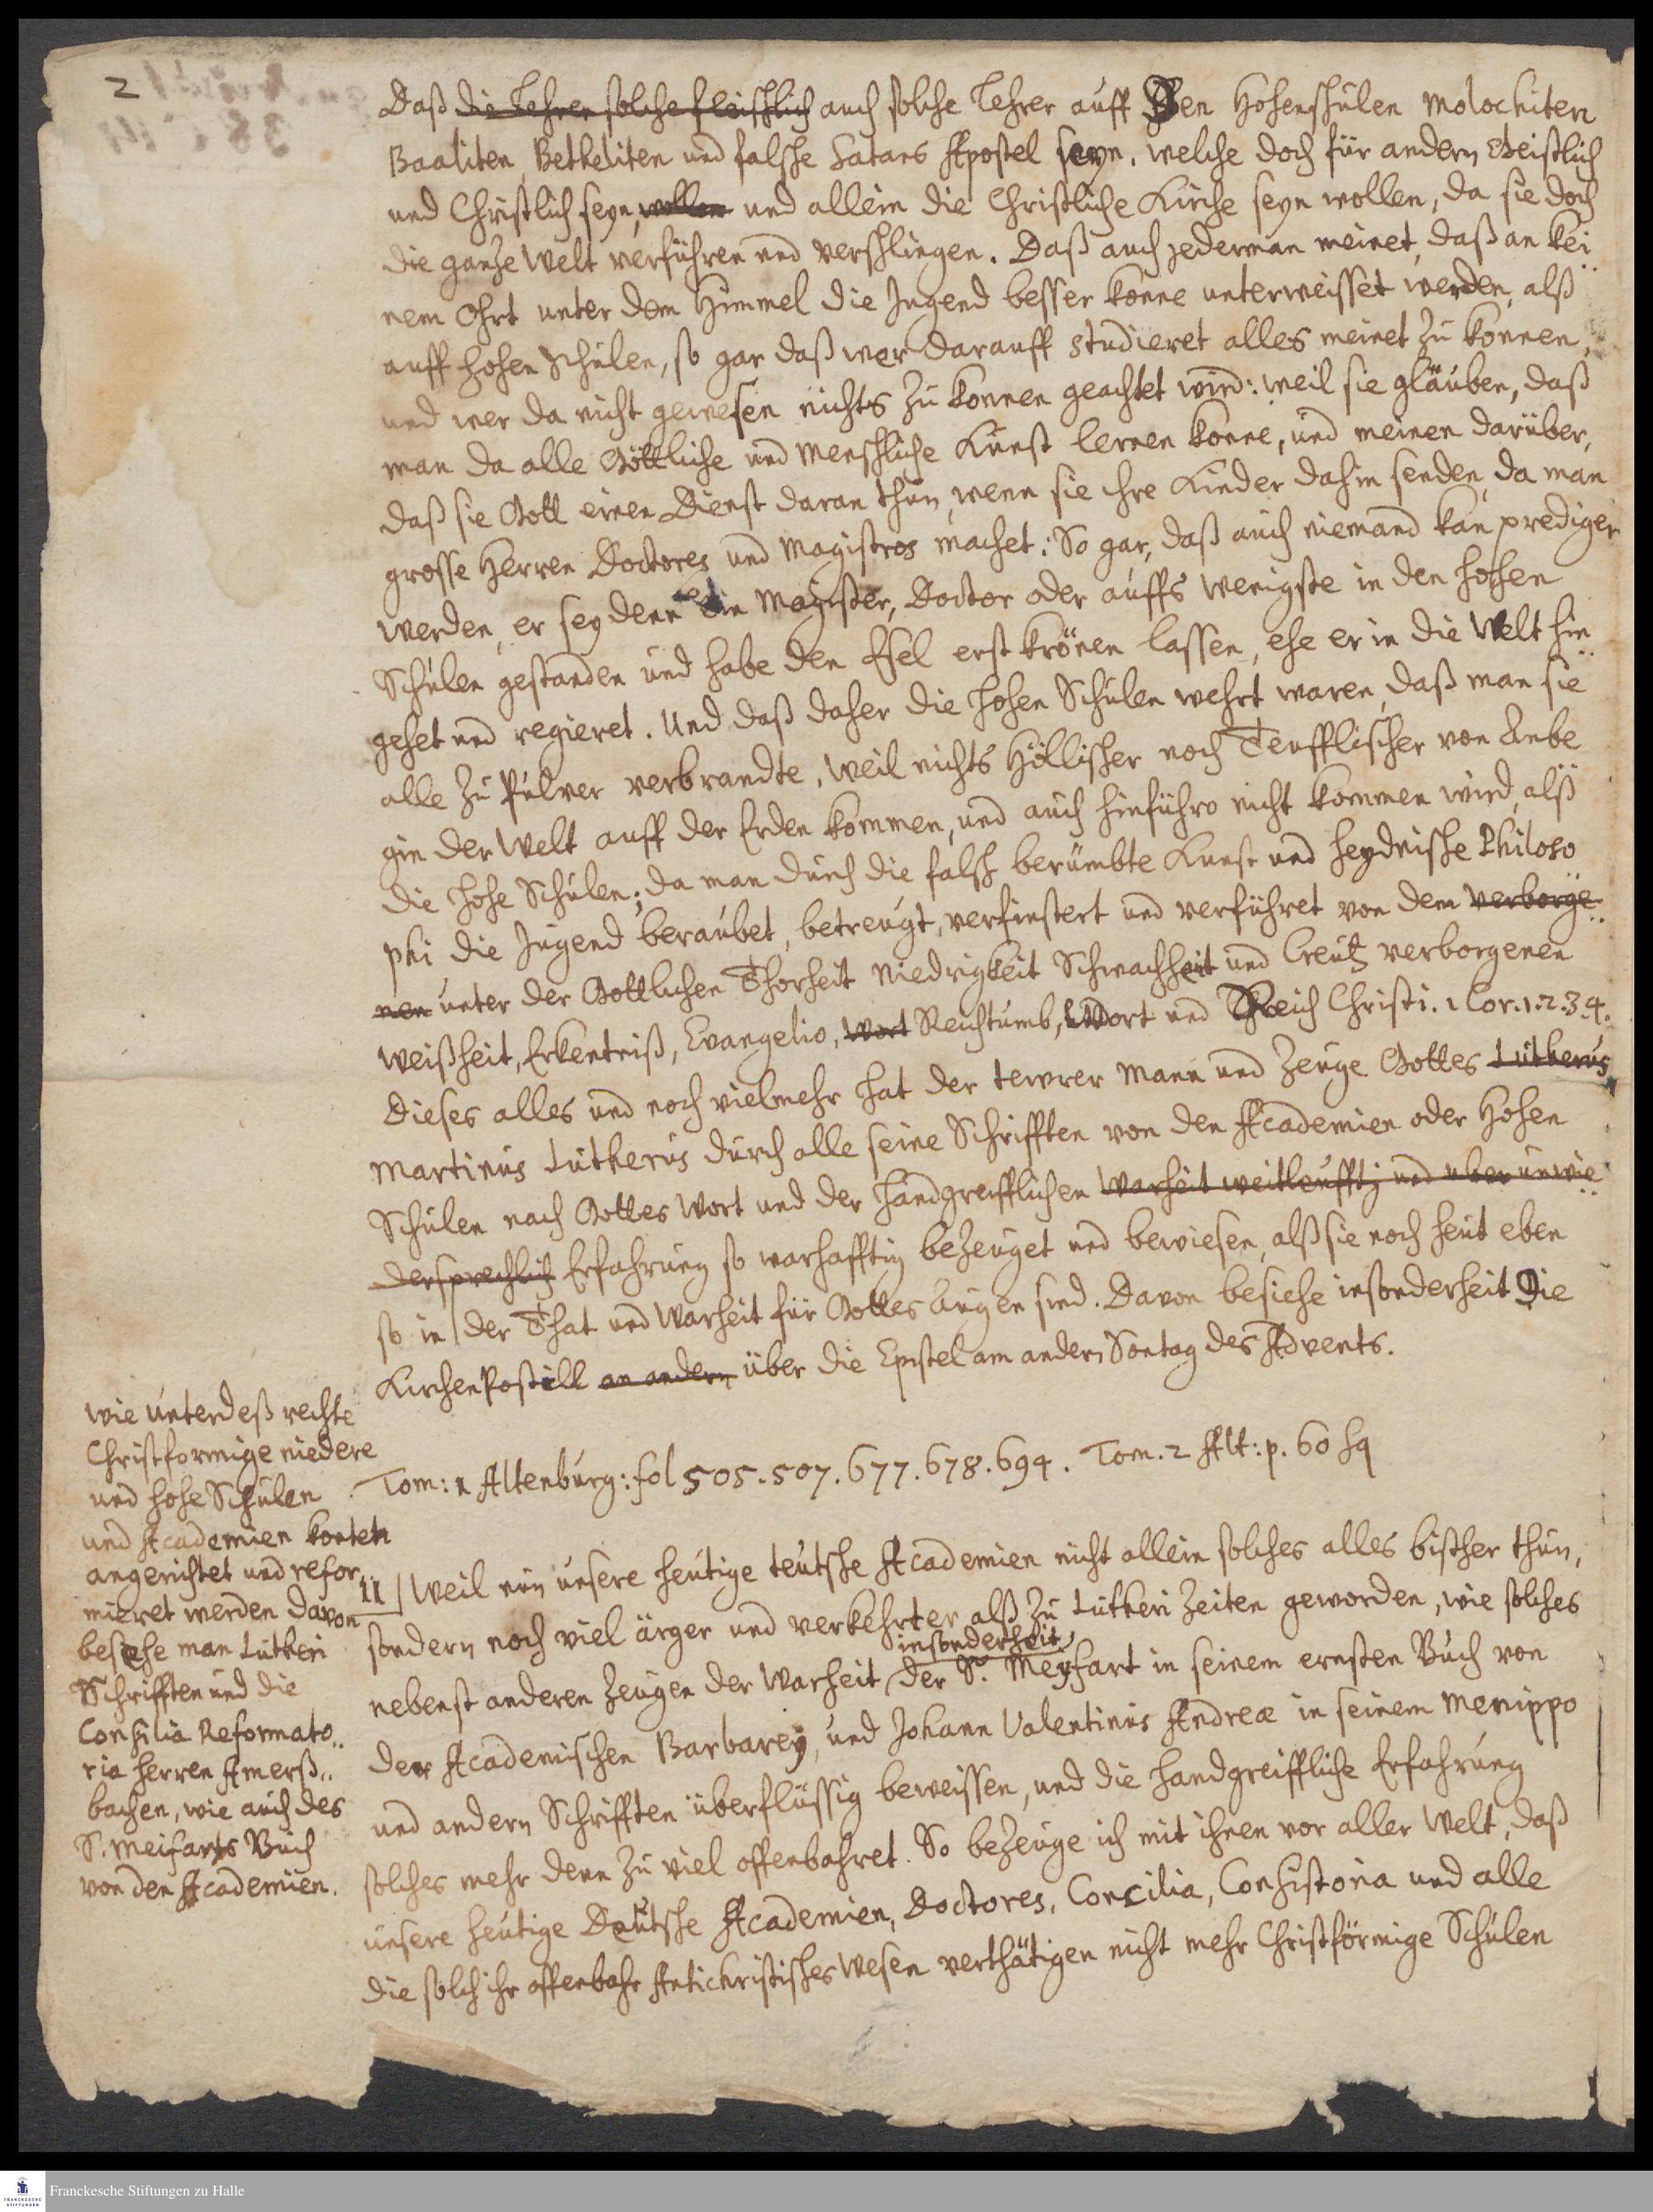 2
Daß die Lehrer solche fleischlich auch solche Lehrer auff Den Hohenschulen Molochiten
Baaliten, Betheliten und falsche Satans Apostel seyn, welche doch für andern Geistlich
und Christlich seyn, wollen und allein die Christliche Kirche seyn wollen, da sie doch
die gantze Welt verführen und verschlingen. Daß auch jederman meinet, daß an kei„
nem Ohrt unter dem Himmel die Jugend besser könne unterweisset werden, alß
auff hohen Schulen, so gar daß wer darauff studieret alles meinet zu können,
und wer da nicht gewesen nichts zu konnen geachtet wird: weil sie gläuben, daß
man da alle Göttliche und Menschliche Kunst lernen könne, und meinen darüber,
daß sie Gott einen Dienst daran thun, wenn sie ihre Kinder dahin senden, da man
grosse Herren Doctores und Magistros machet: So gar, daß auch niemand kan prediger
werden, er sey denn ein Magister, Doctor oder auffs wenigste in den hohen
Schulen gestanden und habe den Esel erst krönen lassen, ehe er in die Welt hin„
gehet und regieret. Und daß daher die hohen Schulen wehrt waren, daß man sie
alle zu Pulver verbrandte, weil nichts Höllischer noch Teufflischer von Anbe„
gin der Welt auff der Erden kommen, und auch hinführo nicht kommen wird, alß
die hohe Schulen; da man durch die falsch berümbte Kunst und heydnische Philoso„
phi die Jugend beraubet, betreugt, verfinstert und verführet von dem verborge„
nen unter der Gottlichen Thorheit Niedrigkeit Schwachheit und Creutz verborgenen
Weißheit, Erkentniß, Evangelio, Wort Reichtumb, Wort und Reich Christi. 1 Cor. 1. 2. 3. 4.
Dieses alles und noch vielmehr hat der tewrer Mann und Zeuge Gottes Lutherus
Martinus Lutherus durch alle seine Schrifften von den Academien oder Hohen
Schulen nach Gottes Wort und der handgreifflichen Warheit weitleufftig und aber unwie„
dersprechlich Erfahrung so warhafftig bezeuget und bewiesen, alß sie noch heut eben
so in der That und Warheit für Gottes Augen sind. Davon besiehe insonderheit Die
Kirchen Postill an andern über die Epistel am andern Sontag des Advents.
Tom: 1 Altenburg: fol 505. 507. 677. 678. 694. Tom. 2 Alt: p. 60 sq
wie unterdeß rechte
Christformige niedere
und hohe Schulen
und Academien konten
angerichtet und refor„
mieret werden davon
besiehe man Lutheri
Schrifften und die
Consilia Reformato„
ria Herren Amerß„
bachen, wie auch des
S. Meifarts Buch
von den Academien.
II Weil nun unsere heutige teutsche Academien nicht allein solches alles bißher thun,
sondern noch viel ärger und verkehrter alß zu Lutheri Zeiten geworden, wie solches
insonderheit
nebenst anderen Zeugen der Warheit, der S. Meyfart in seinem ernsten Buch von
der Academischen Barbarey, und Johann Valentinus Andreæ in seinem Menippo
und andern Schrifften überflüssig beweissen, und die handgreiffliche Erfahrung
solches mehr denn zu viel offenbahret. So bezeuge ich mit ihnen vor aller Welt, daß
unsere heutige Deutsche Academien, Doctores, Concilia, Consistoria und alle
die solch ihr offenbahr Antichristisches Wesen verthätigen nicht mehr Christförmige Schulen
FRANCKESCHE STIFTUNGEN
Franckesche Stiftungen zu Halle